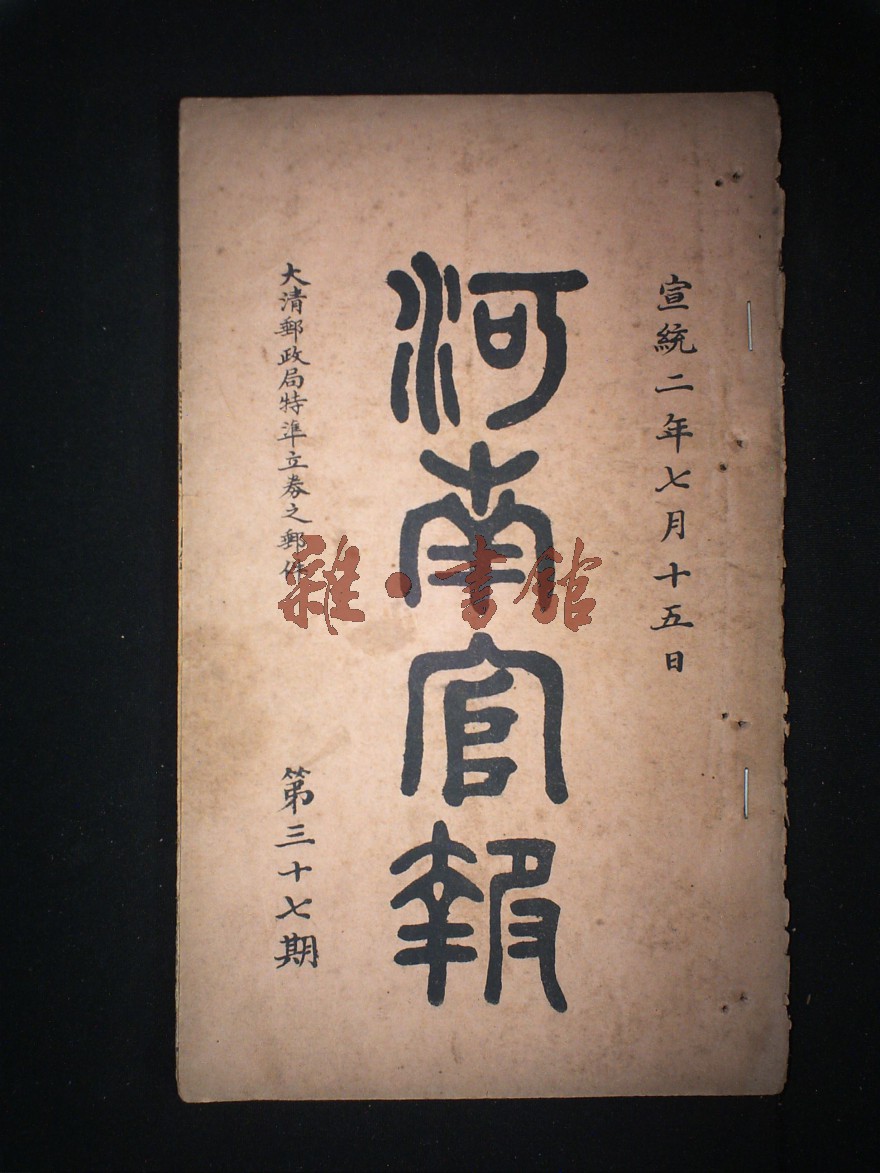 宣統二年七月十五日
河南官報
大清郵政局特準立券之郵件
第三十七期
雜·書館